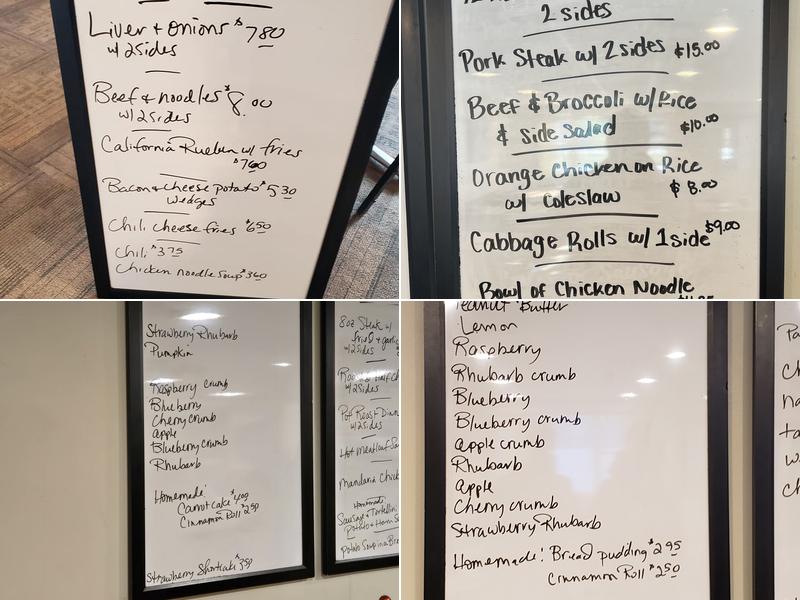 Liver + onions $7.80
w/ 2 sides
Beef & noodles $8.00
w/ 2 sides
California Rueben w/ fries
$7.60
Bacon & cheese potato $5.30
wedges
Chili cheese fries $6.50
Chili $3.75
Chicken noodle soup $3.60
2 sides
Pork Steak w/ 2 sides $15.00
Beef & Broccoli w/ Rice
& side salad $10.00
Orange Chicken on Rice
w/ Coleslaw $8.00
Cabbage Rolls w/ 1 side $9.00
Bowl of Chicken Noodle
Strawberry Rhubarb
Pumpkin
Raspberry crumb
Blueberry
Cherry crumb
apple
Blueberry crumb
Rhubarb
Homemade:
Carrot cake $4.00
Cinnamon Roll $2.50
Strawberry Shortcake $3.50
8oz Steak w/
w/ 2 sides
w/ 2 sides
Pot Roast Dinn
w/ 2 sides
Hot Meatloaf Sa
Mandarin Chick
Homemade
Sausage + Tortellini
Potato + Ham S
Potato Soup in a Bre
Peanut Butter
Lemon
Raspberry
Rhubarb crumb
Blueberry
Blueberry crumb
apple crumb
Rhubarb
apple
Cherry crumb
Strawberry Rhubarb
Homemade: Bread pudding $2.95
Cinnamon Roll $2.50